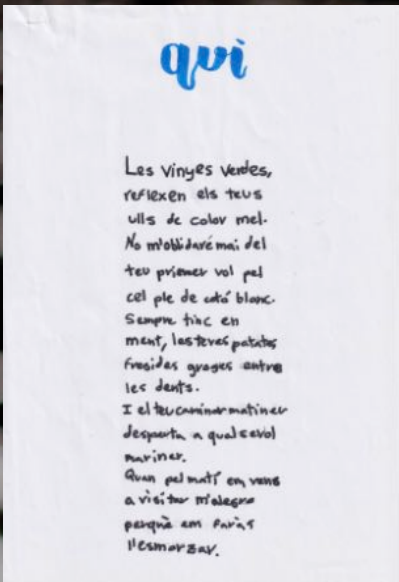 qui
Les vinyes verdes,
reflexen els teus
ulls de color mel.
No m'oblidaré mai del
teu primer vol pel
cel ple de cotó blanc.
Sempre tinc en
ment, les teves potetes
fregides grogues entre
les dents.
I el teu caminar matiner
desperta a qualsevol
mariner.
Quan pel matí em vens
a visitar m'alegro
perquè em faràs
l'esmorzar.